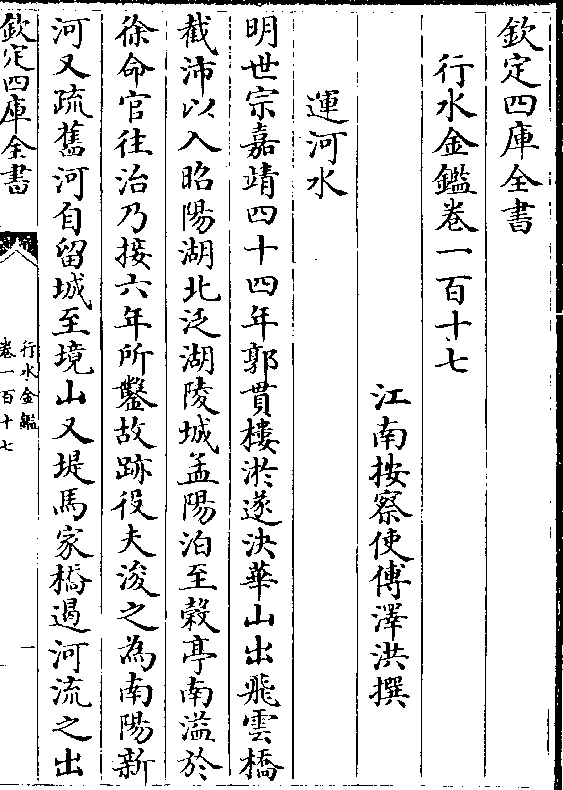 欽定四庫全書
行水金鑑卷一百十七
江南按察使傅澤洪撰
運河水
明世宗嘉靖四十四年郭貫樓淤遂決華山出飛雲橋
截沛以入昭陽湖北泛湖陵城孟陽泊至榖亭南溢於
徐命官往治乃接六年所鑿故跡役夫浚之為南陽新
河又疏舊河自留城至境山又堤馬家橋遏河流之出
欽定四庫全書
行水金鑑
卷一百十七
一